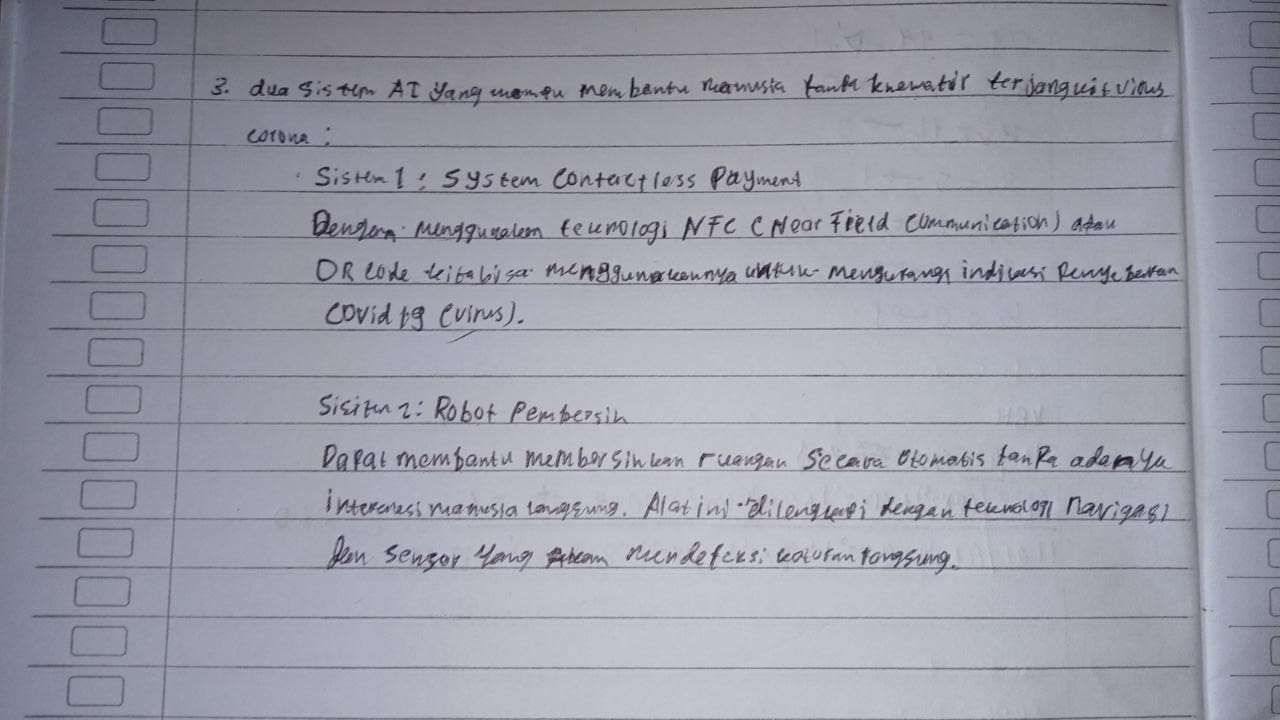 3. dua Sistem AI yang mampu membantu manusia tanpa khawatir terjangkit virus
corona :
Sistem 1 : System Contactless Payment
Dengan menggunakan teknologi NFC (Near Field Communication) atau
QR Code kita bisa menggunakannya untuk mengurangi indikasi Penyebaran
Covid 19 (virus).
Sisitem 2 : Robot Pembersih
Dapat membantu membersihkan ruangan Secara Otomatis tanpa adanya
interensi manusia langsung. Alat ini dilengkapi dengan teknologi navigasi
dan Sensor yang akan mendeteksi kotoran langsung.